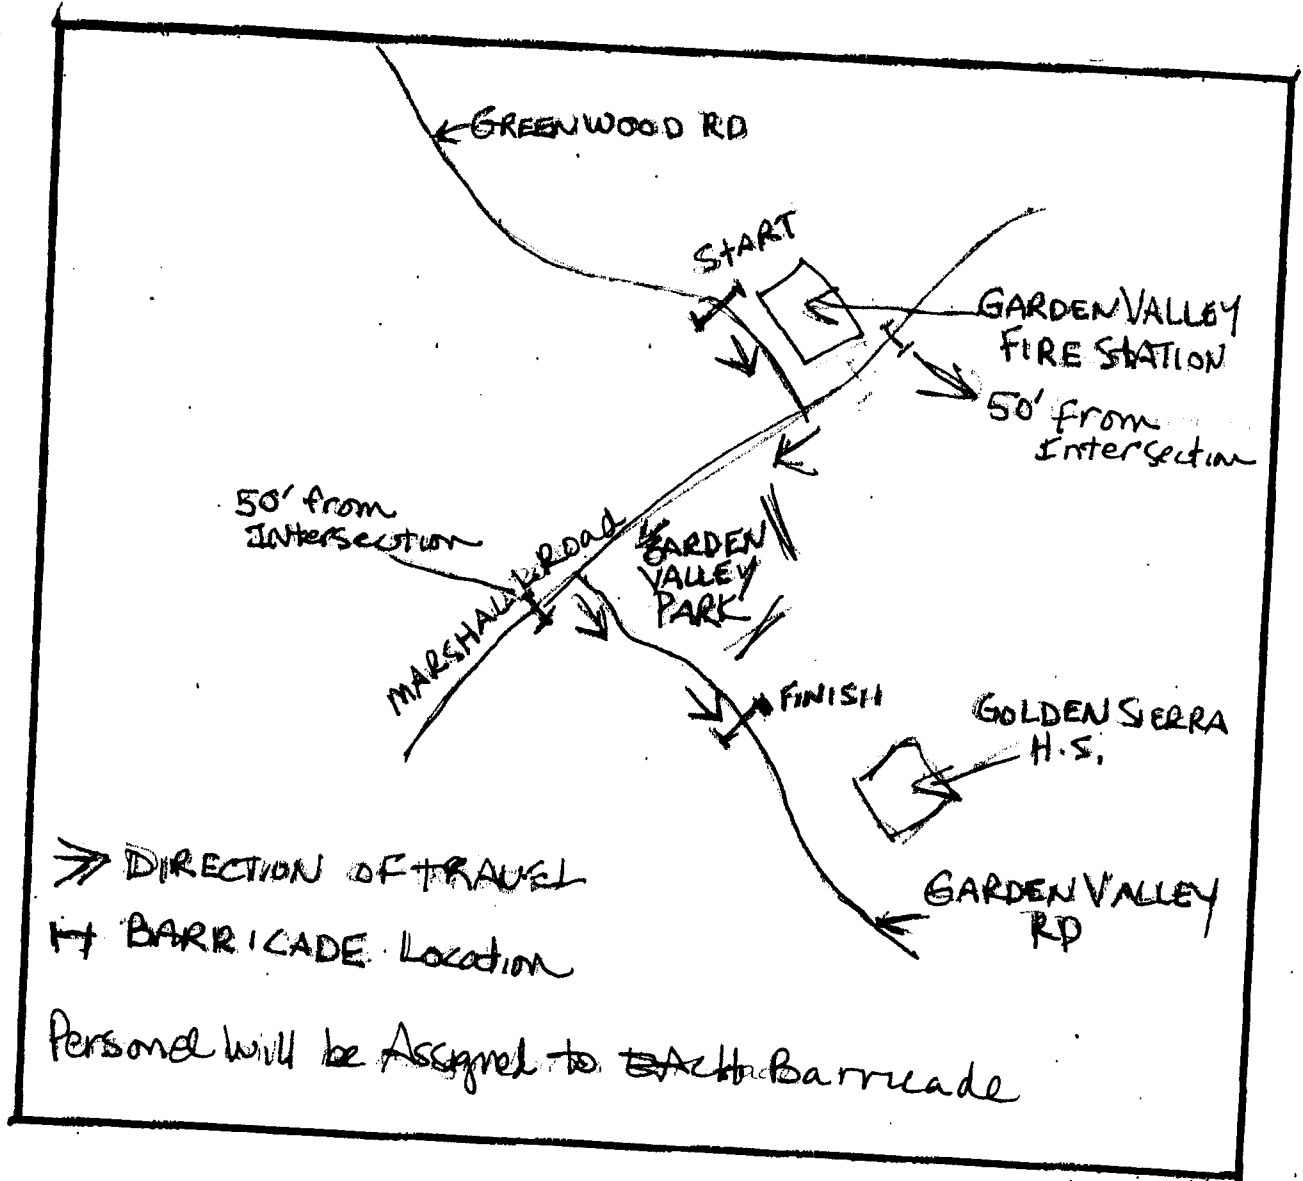 GREENWOOD RD
START
GARDEN VALLEY
FIRE STATION
50' from
Intersection
50' from
Intersection
MARSHALL Road
GARDEN
VALLEY
PARK
FINISH
GOLDEN SIERRA
H.S.
GARDEN VALLEY
RD
DIRECTION OF TRAVEL
BARRICADE Location
Personel Will be Assigned to EACH Barricade